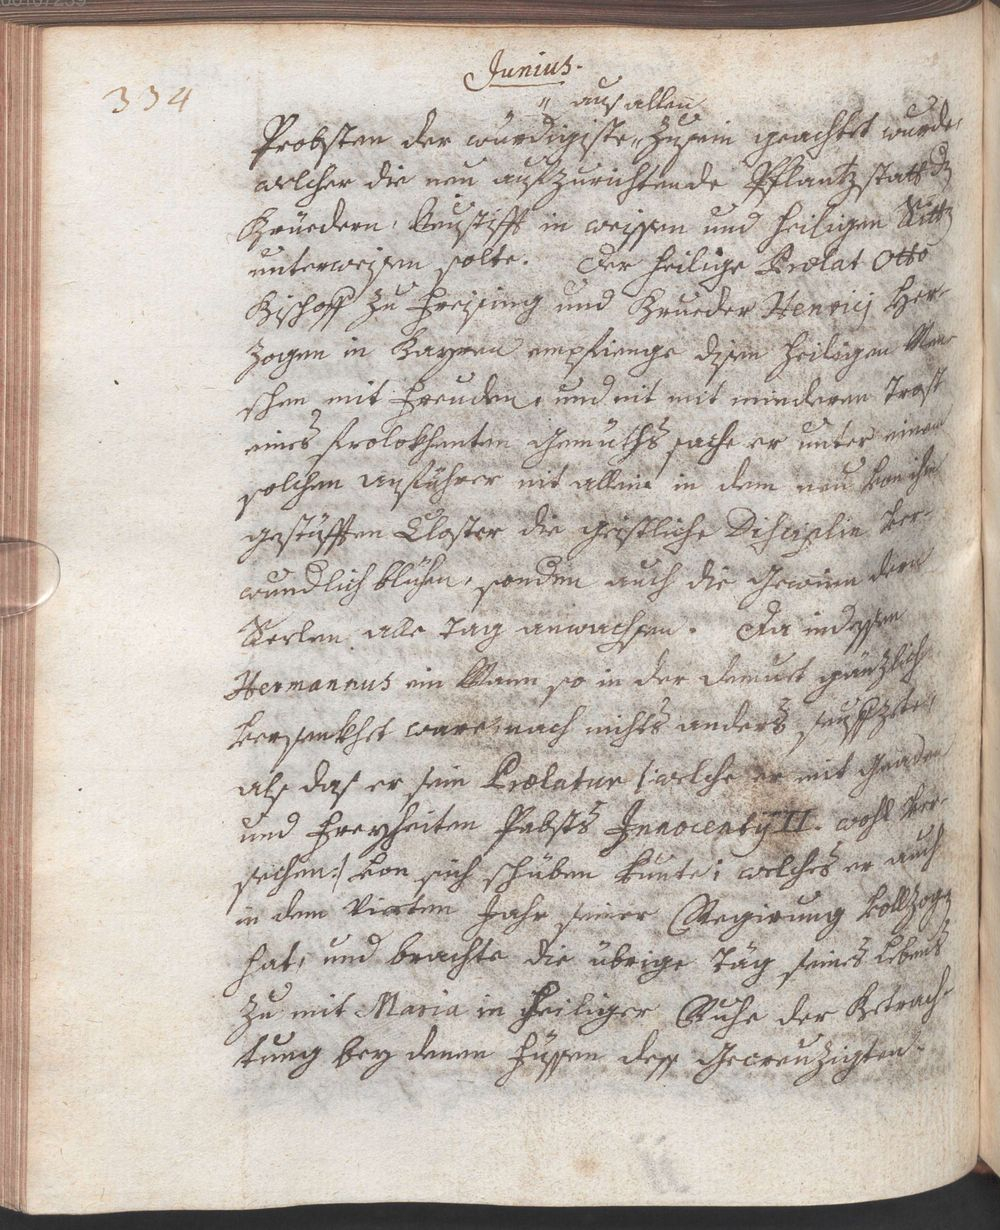 Junius.
334
" aus allen
Probsten der würdigiste " zusein geachtet wurde,
welcher die neu aufzurichtende Pflantzstatt d
Brüedern Neustifft in weissen und heiligen Sitt
unterweisen solte. Der heilige Prælat Otto
Bischoff zu Freising und Brueder Henricj Her-
zogen in Bayren empfienge disen heiligen Men-
schen mit Freuden, und nit mit minderen Trost
eines frolokhenten Gemüths sache er unter einem
solchen Anführer nit allein in dem neu von ihm
gestüfften Closter die geistliche Disciplin ver-
wundlich blühen, sonden auch die Gewinn deren
Seelen alle Tag anwachsen. Da indessen
Hermannus ein Mann so in der Demuet gänzlich
versenkhet ware, nach nichts anders seuffzete,
als das er sein Prælatur /: welche er mit Gnaden
und Freyheiten Pabsts Innocentij II. wohl ver-
sechen :/ von sich schüben kunte; welches er auch
in dem vierten Jahr seiner Regirung vollzogen
hat, und brachte die übrige Täg seines Lebens
zu mit Maria in heiliger Ruhe der Betrach-
tung bey denen Füssen dess Gecreuzigten.